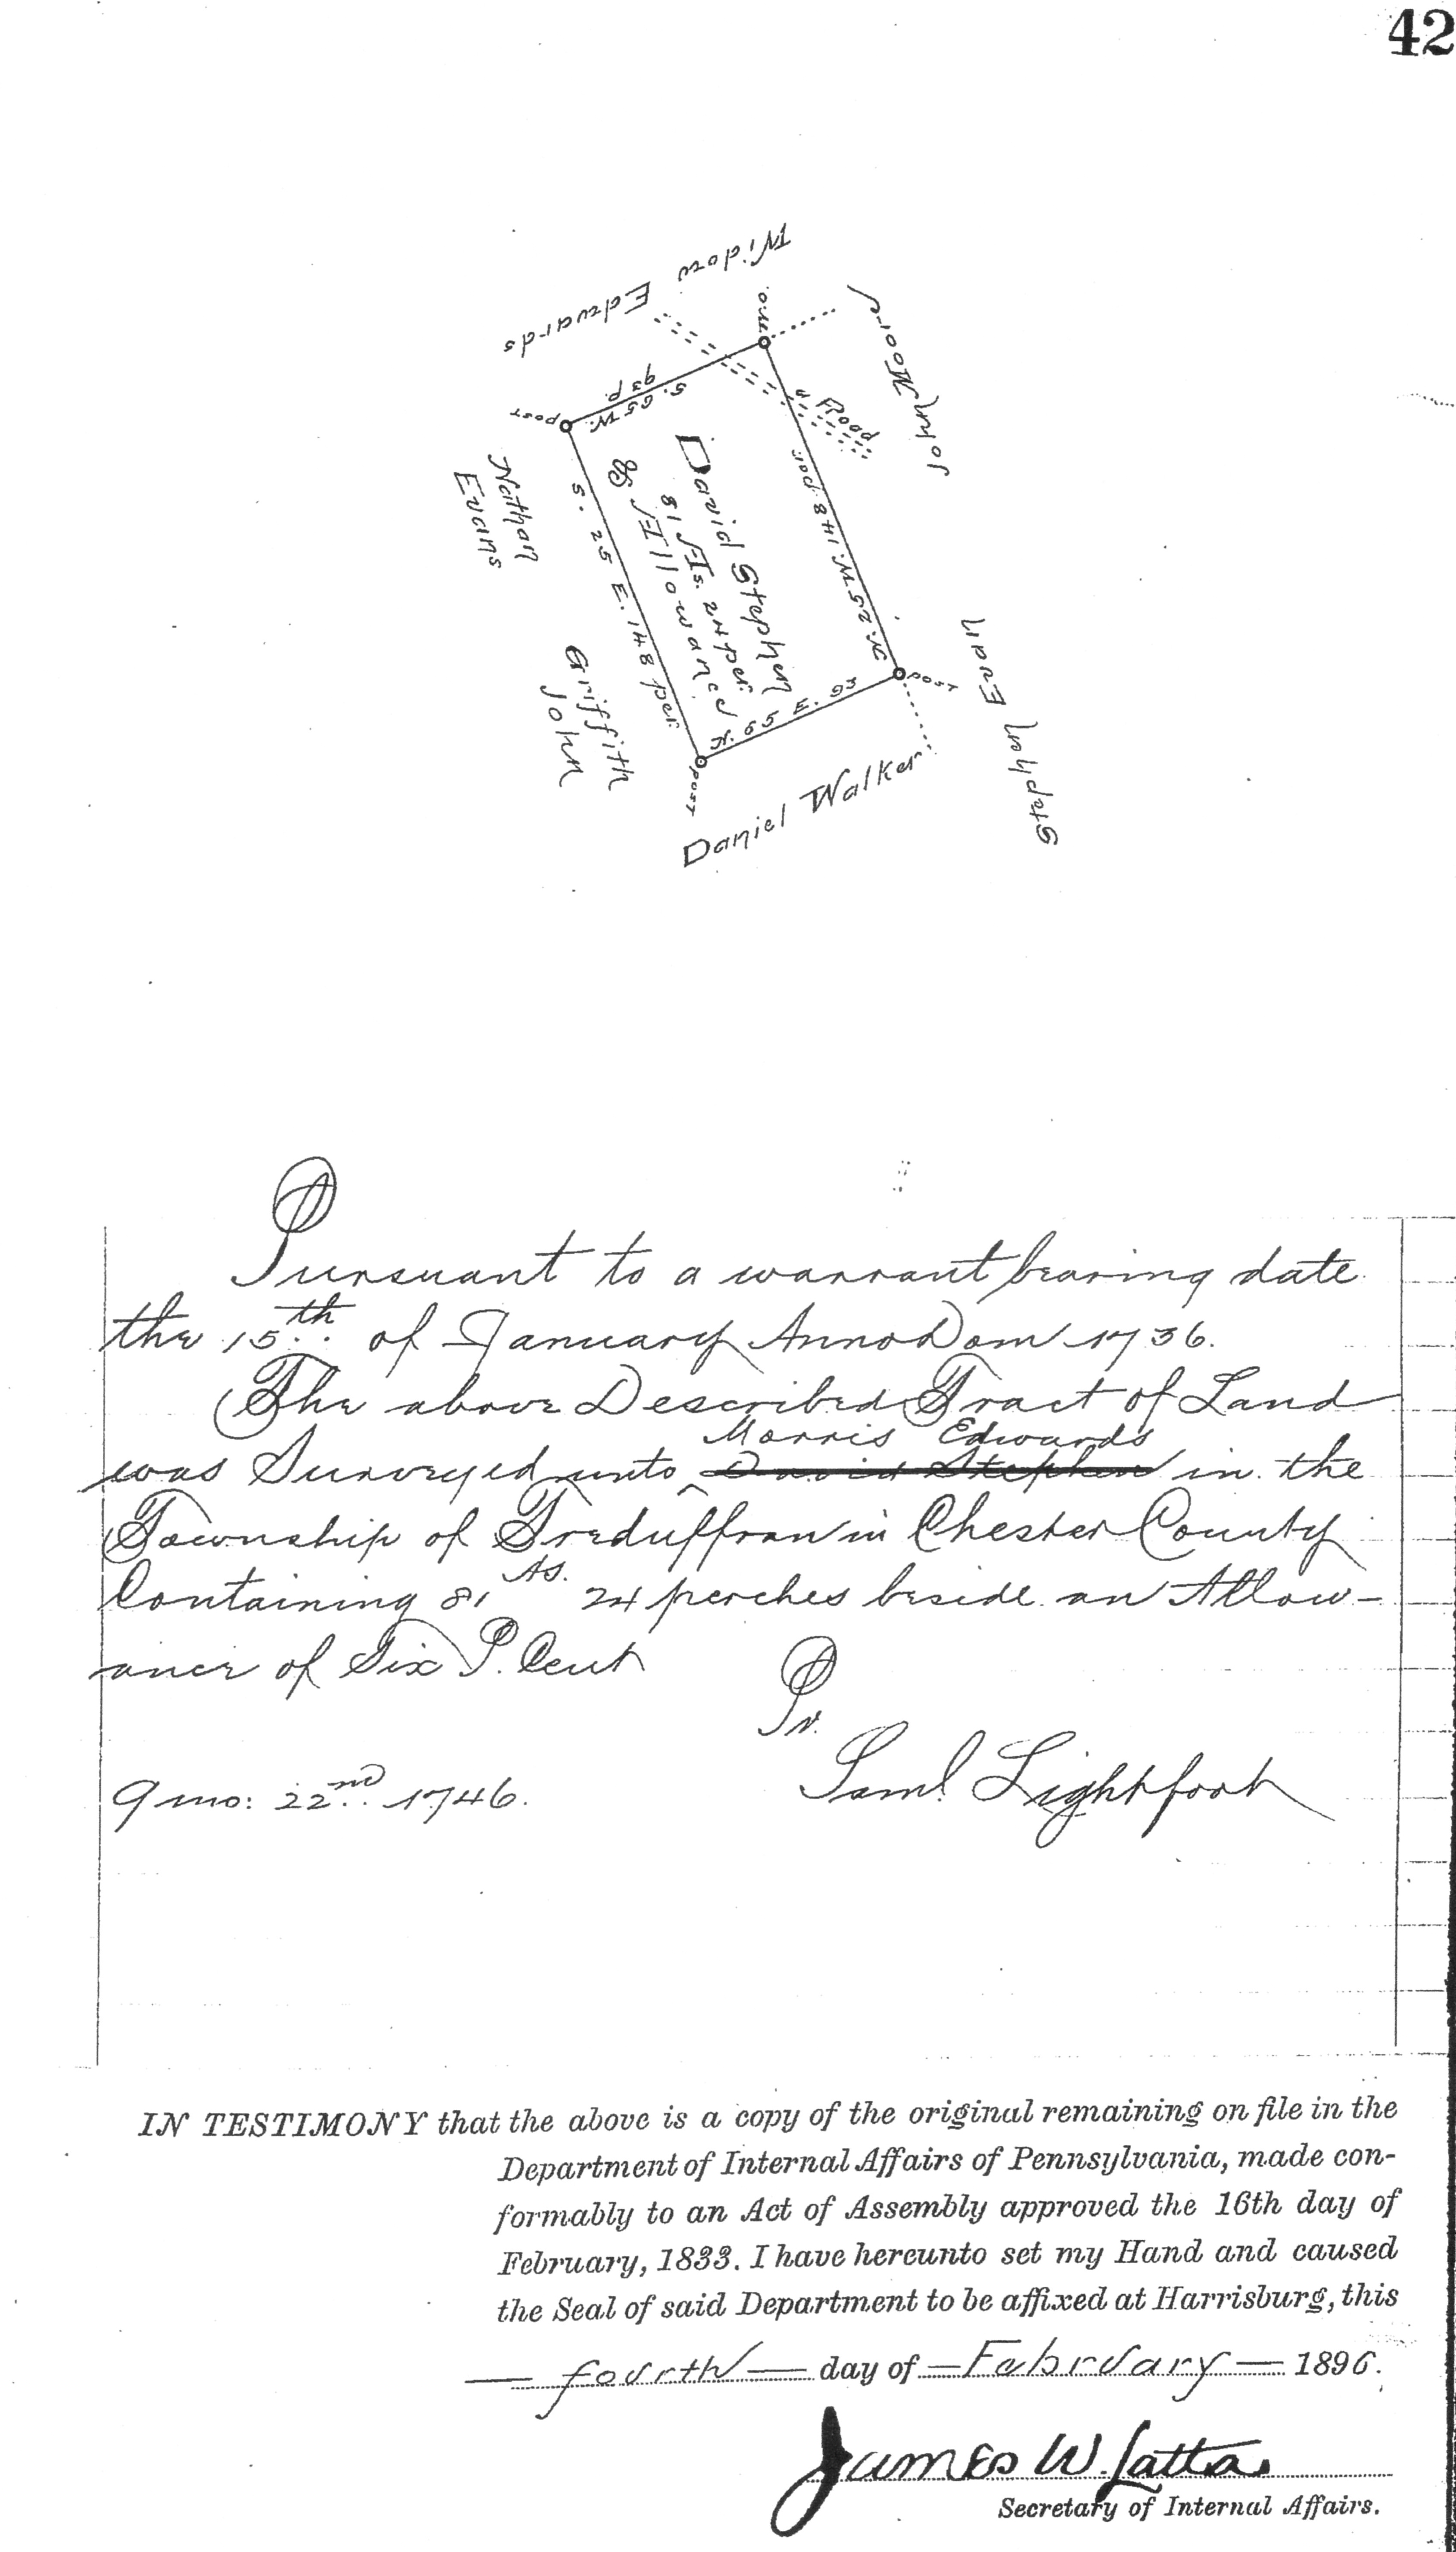 42
Widow Edwards
John Moor
a Road
post
S. 65 W.
93 P.
N. 25 W. 148 per.
David Stephen
81 As. 24 per.
& Allowance
S. 25 E. 148 per.
Nathan
Evans
Griffith
John
post
N. 65 E. 93
post
Daniel Walker
Stephen Evan
Pursuant to a warrant bearing date
the 15th of January Anno Dom 1736.
The above Described Tract of Land
Morris Edwards
was Surveyed unto David Stephen in the
Township of Treduffran in Chester County
Containing 81 As. 24 perches beside an Allow-
ance of Six P. Cent
Pr.
9 mo: 22nd 1746. Saml. Lightfoot
IN TESTIMONY that the above is a copy of the original remaining on file in the
Department of Internal Affairs of Pennsylvania, made con-
formably to an Act of Assembly approved the 16th day of
February, 1833. I have hereunto set my Hand and caused
the Seal of said Department to be affixed at Harrisburg, this
fourth day of February 1896.
James W. Latta
Secretary of Internal Affairs.